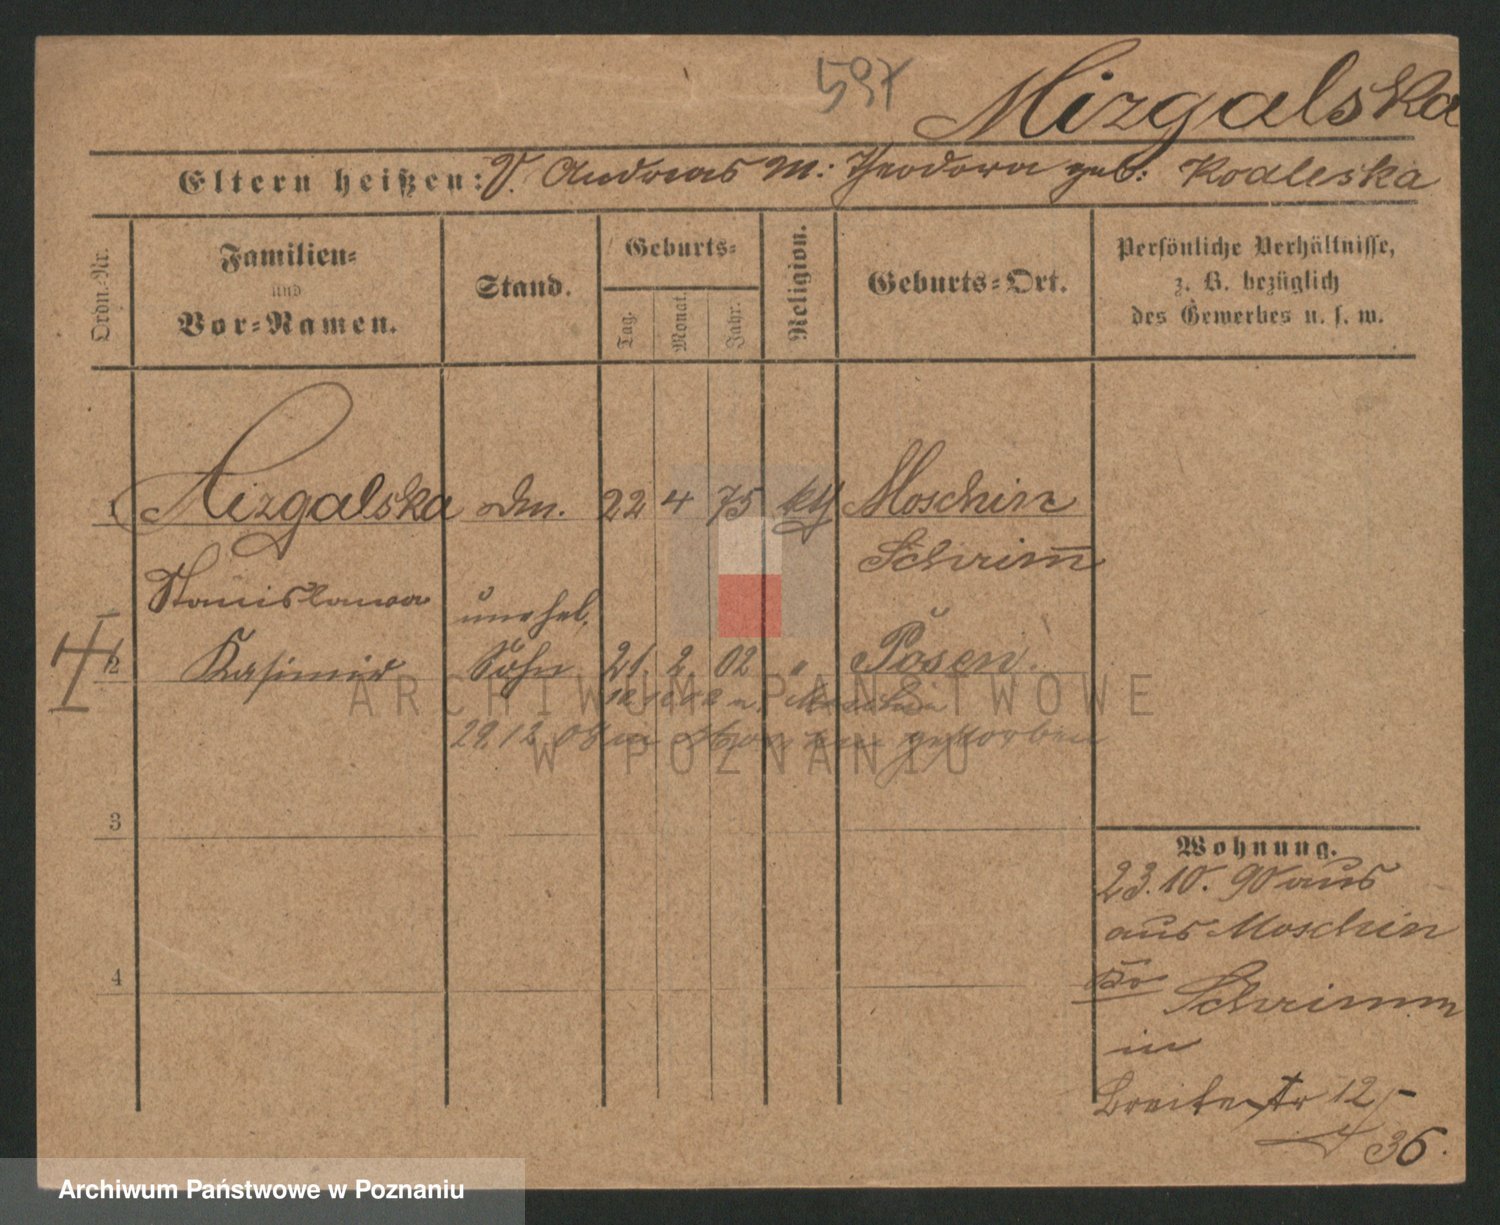 597
Mizgalska
Eltern heißen: V. Andreas M: Theodora geb: Kodleska
Ordn.-Nr.
Familien-
und
Vor-Namen.
Stand.
Geburts-
Tag.
Monat.
Jahr.
Religion.
Geburts-Ort.
Persönliche Verhältnisse,
z. B. bezüglich
des Gewerbes u. s. w.
1 Mizgalska 22 4 75 kth Moschin
Schrimm
Stanislawa
unehel.
2 Kasimir Sohn 21 2 02 " Posen.
Moschin
29.12 gestorben
ARCHIWUM PAŃSTWOWE
W POZNANIU
3
Wohnung.
23.10.90 aus
aus Moschin
4
Kr Schrimm
in
Breitestr 12
36.
Archiwum Państwowe w Poznaniu